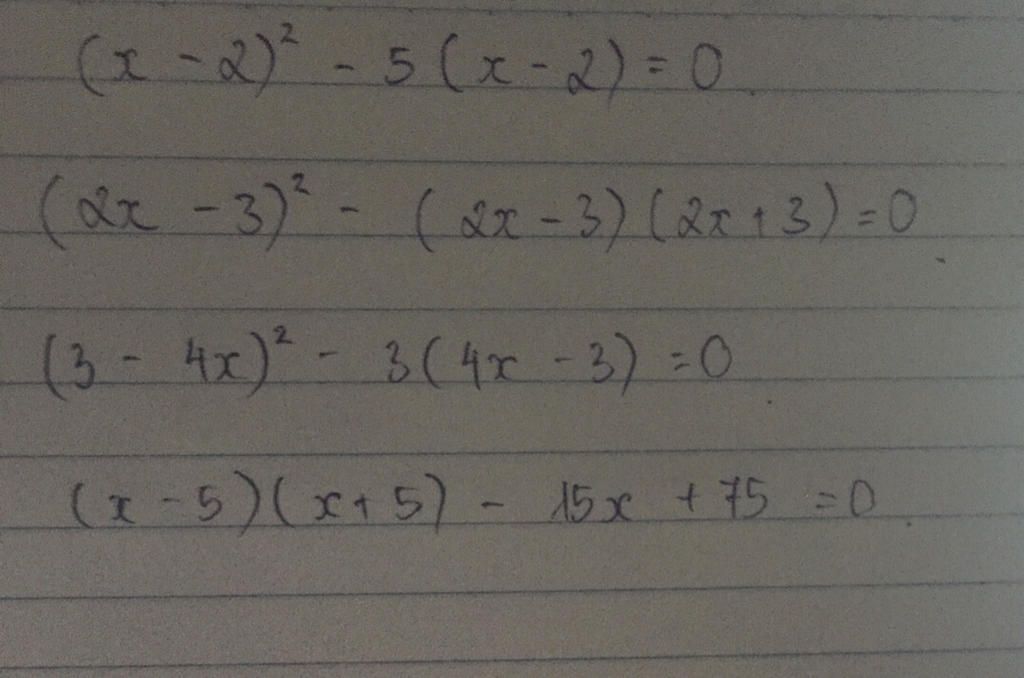 (x - 2)² - 5 (x - 2) = 0
(2x - 3)² - (2x - 3) (2x + 3) = 0
(3 - 4x)² - 3 (4x - 3) = 0
(x - 5) (x + 5) - 15x + 75 = 0